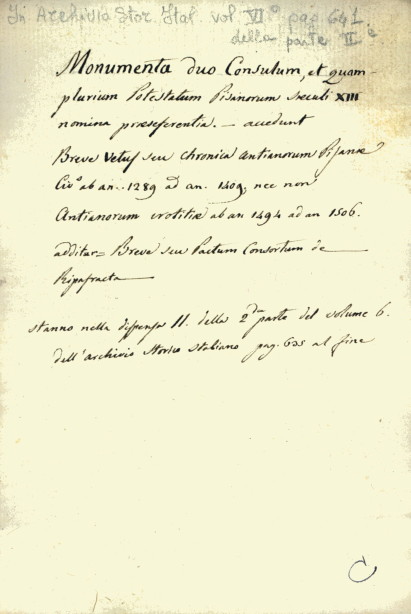 In Archivio Stor. Ital. vol. VI° pag 641.
della parte II.e
Monumenta duo Consulum, et quam-
plurium Potestatum Pisanorum sæculi XIII
nomina præseferentia. — accedunt
Breve Vetus seu chronica antianorum Pisanæ
Civis ab an. 1289 ad an. 1409, nec non
Antianorum notitiæ ab an 1494 ad an 1506.
additur = Breve seu Pactum Consortum de
Ripafracta
stanno nella dispensa II. della 2da parte del volume 6.
dell'archivio storico italiano pag. 635 al fine
C